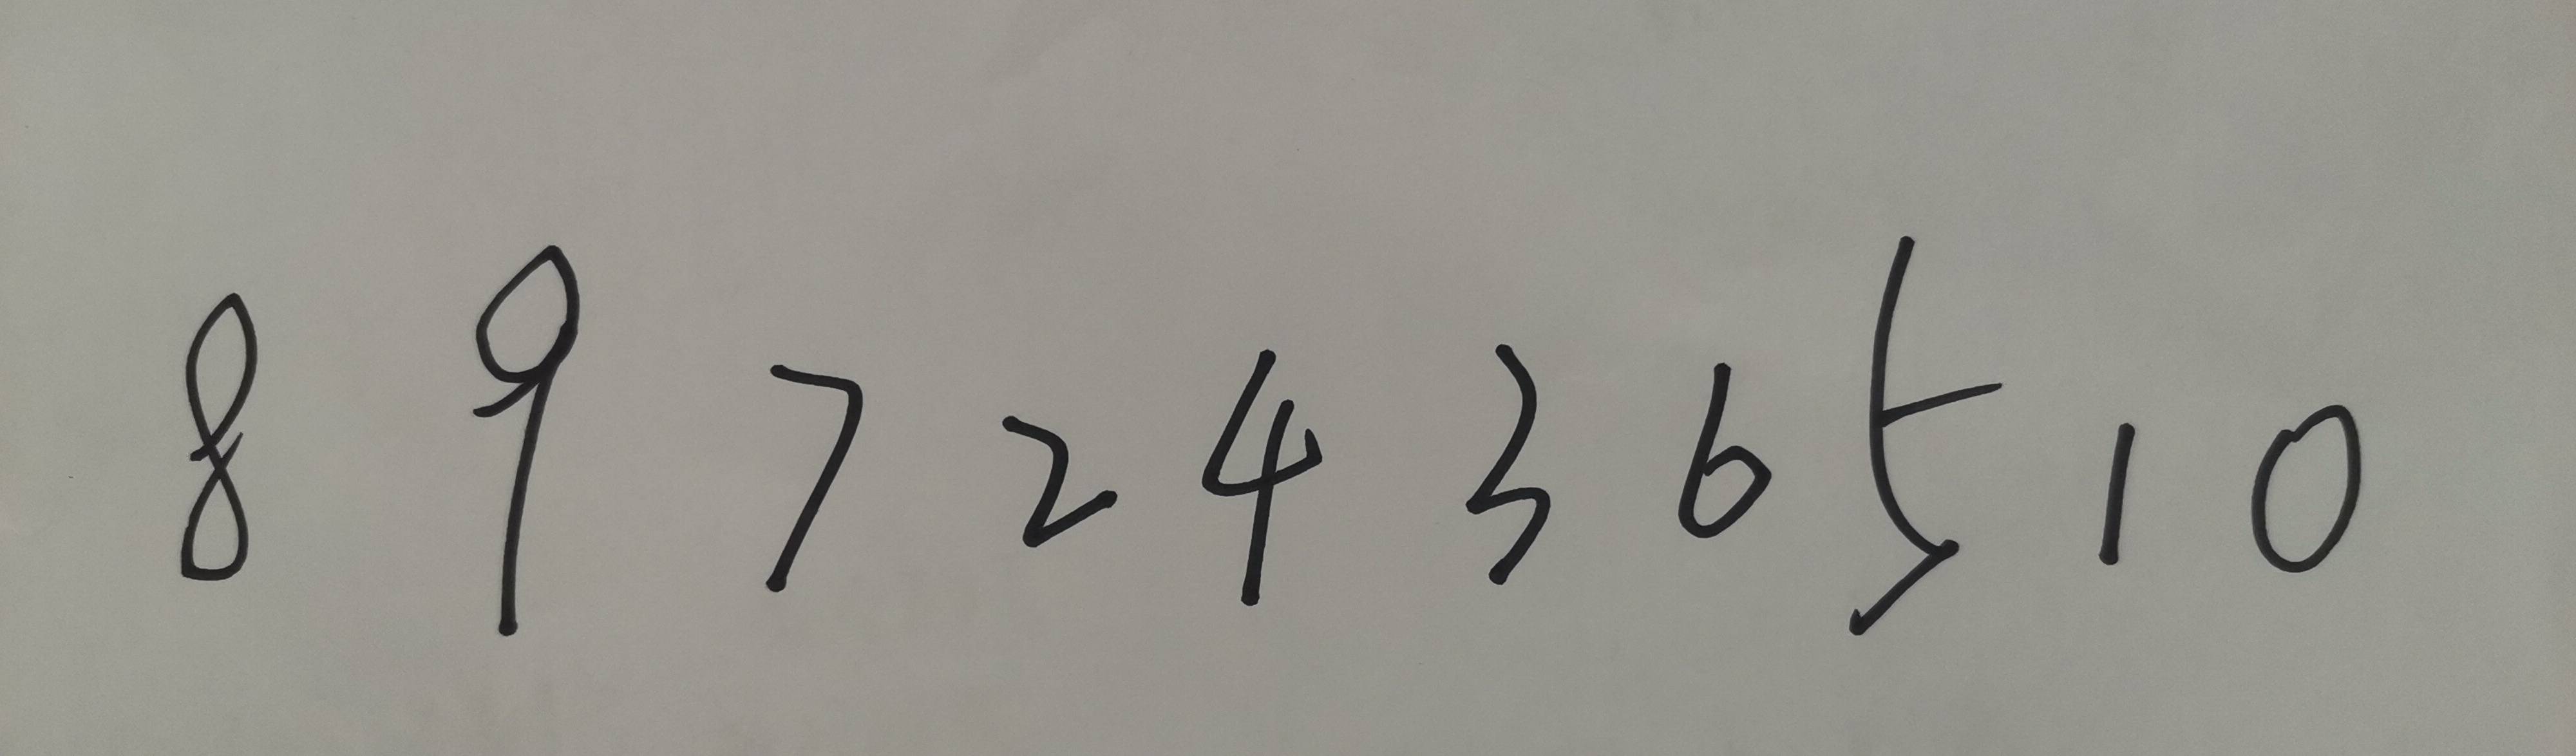 8 9 7 2 4 3 6 5 1 0